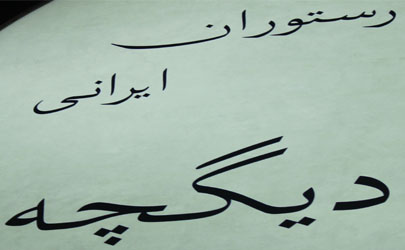 رستوران
ایرانی
دیگچه